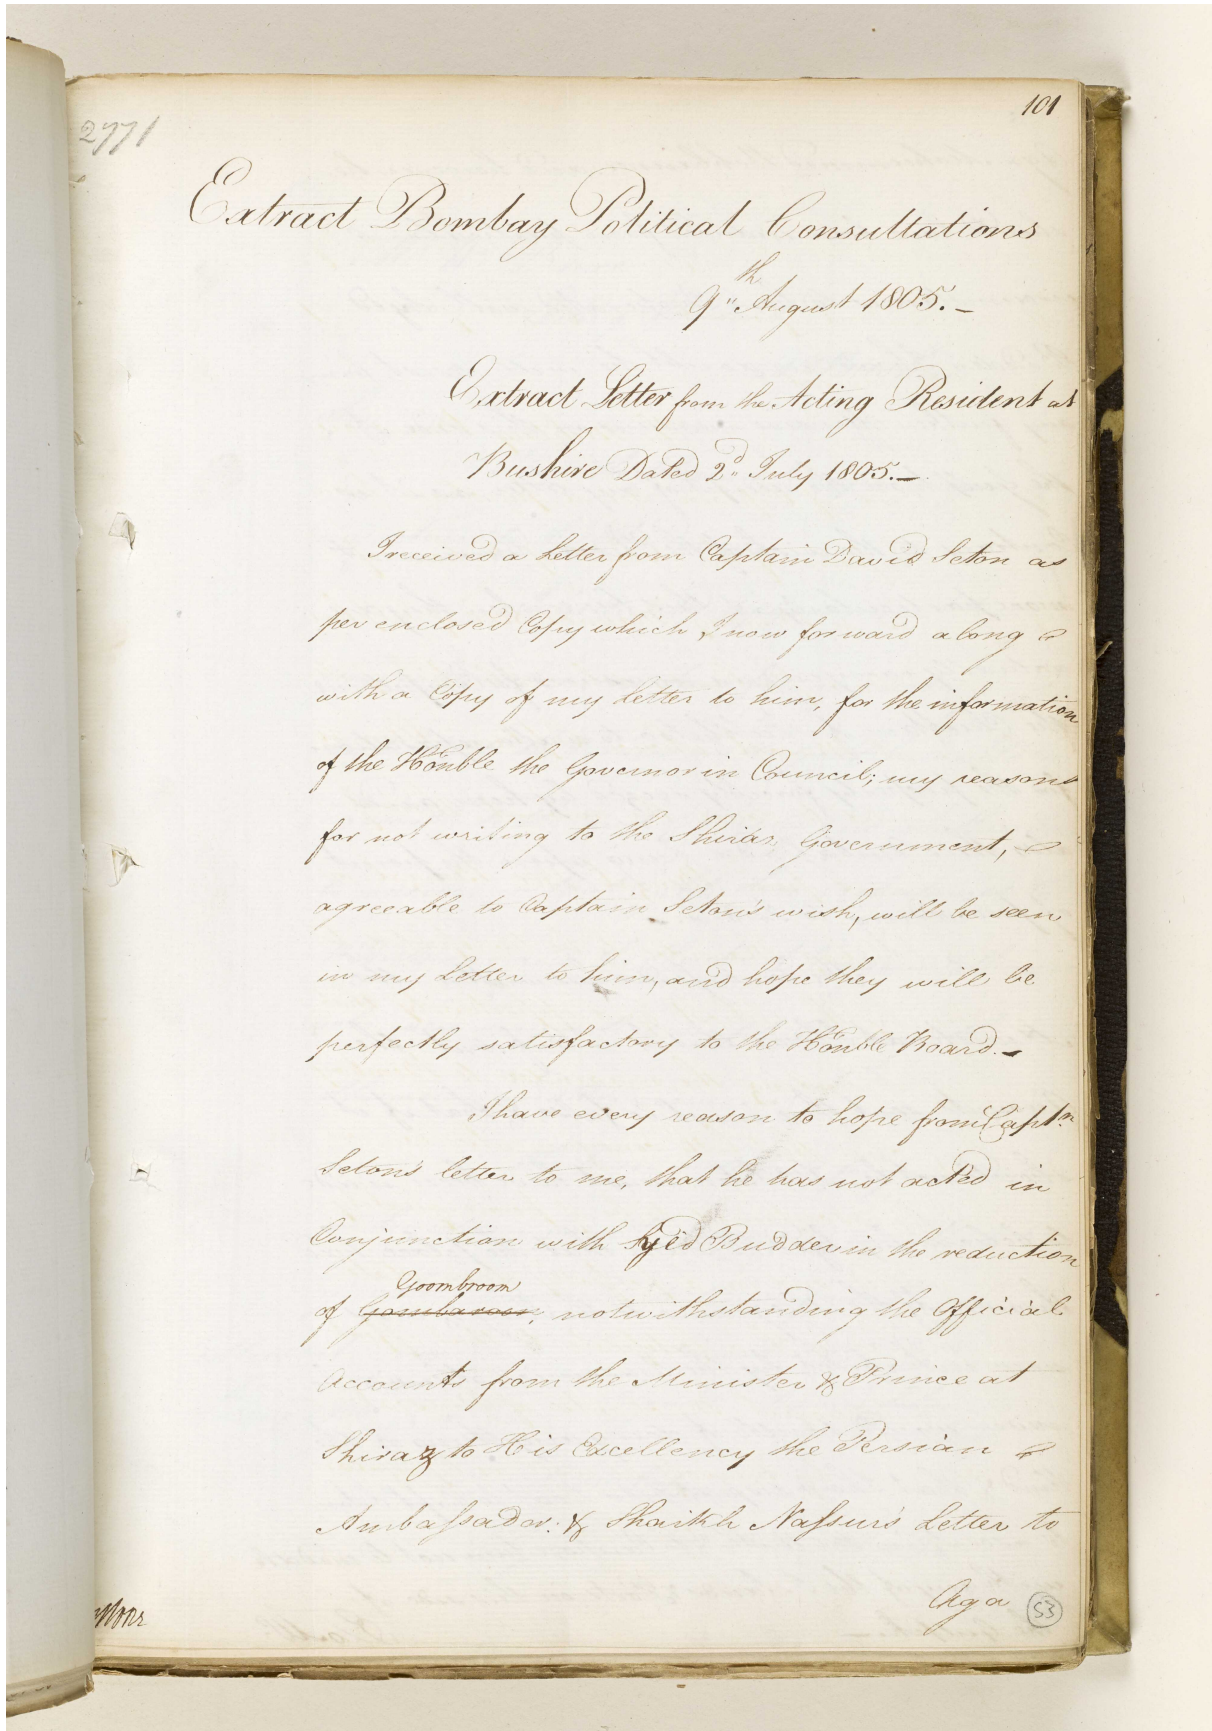 101
2771
Extract Bombay Political Consultations
9th August 1805.-
Extract Letter from the Acting Resident at
Bushire Dated 2d July 1805.-
I received a Letter from Captain David Seton as
per enclosed Copy which I now forward along
with a Copy of my letter to him, for the information
of the Honble the Governor in Council; my reasons
for not writing to the Shiraz Government,
agreeable to Captain Seton's wish, will be seen
in my Letter to him, and hope they will be
perfectly satisfactory to the Honble Board.-
I have every reason to hope from Captn
Seton's letter to me, that he has not acted in
Conjunction with Syed Budder in the reduction
Goombroom
of Gombaroon, notwithstanding the Official
Accounts from the Minister & Prince at
Shiraz to His Excellency the Persian
Ambassador. & Shaikh Nassur's Letter to
Aga
53